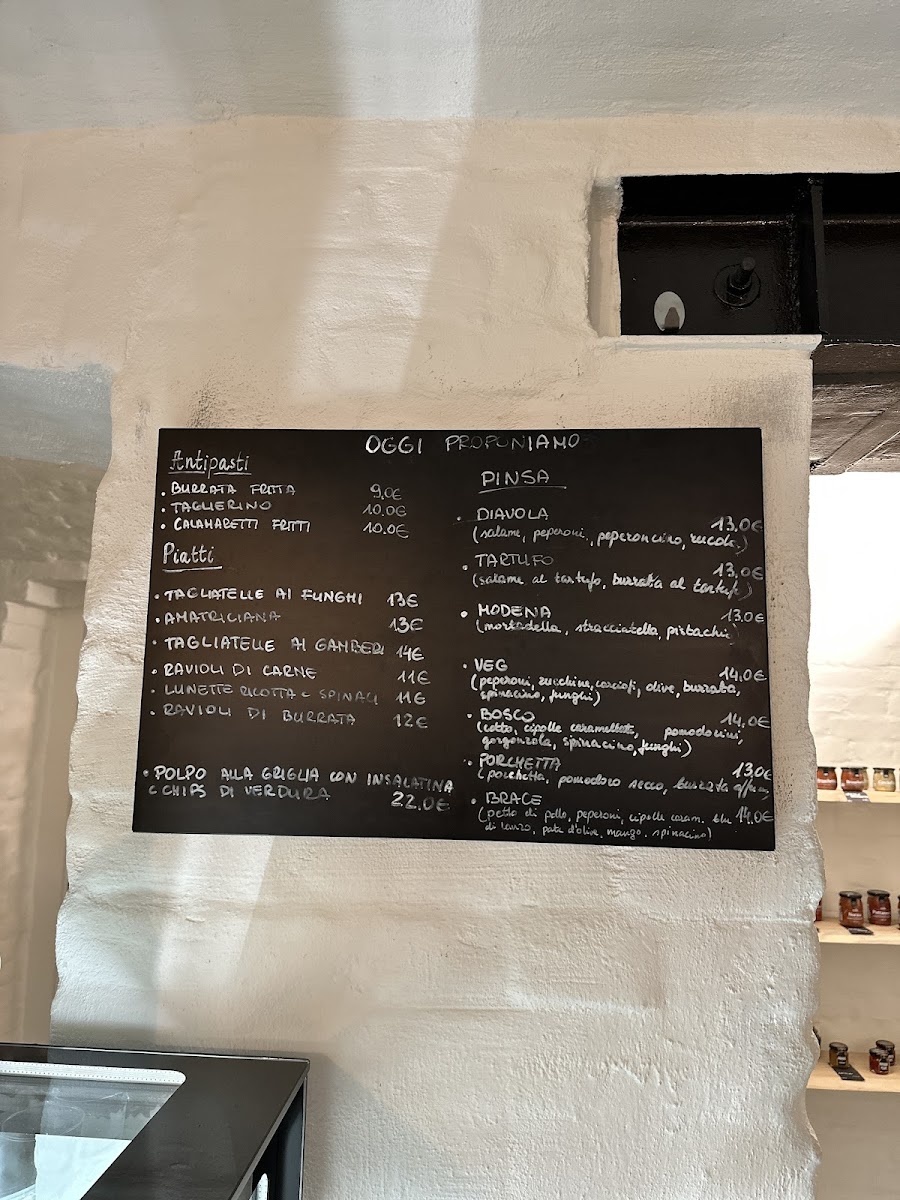 OGGI PROPONIAMO
Antipasti
. BURRATA FRITTA 9,0€
. TAGLIERINO 10,0€
. CALAMARETTI FRITTI 10,0€
Piatti
. TAGLIATELLE AI FUNGHI 13€
. AMATRICIANA 13€
. TAGLIATELLE AI GAMBERI 14€
. RAVIOLI DI CARNE 11€
. LUNETTE RICOTTA E SPINACI 11€
. RAVIOLI DI BURRATA 12€
. POLPO ALLA GRIGLIA CON INSALATINA
E CHIPS DI VERDURA 22,0€
PINSA
. DIAVOLA 13,0€
(salame, peperoni, peperoncino, rucola)
. TARTUFO 13,0€
(salame al tartufo, burrata al tartufo)
. MODENA 13,0€
(mortadella, stracciatella, pistacchi)
. VEG 14,0€
(peperoni, zucchine, carciofi, olive, burrata,
spinacino, funghi)
. BOSCO 14,0€
(cotto, cipolle caramellate, pomodorini,
gorgonzola, spinacino, funghi)
. PORCHETTA 13,0€
(porchetta, pomodoro secco, burrata
. BRACE 14,0€
(petto di pollo, peperoni, cipolle caram. blu
di lanzo, patè d'olive, mango, spinacino)